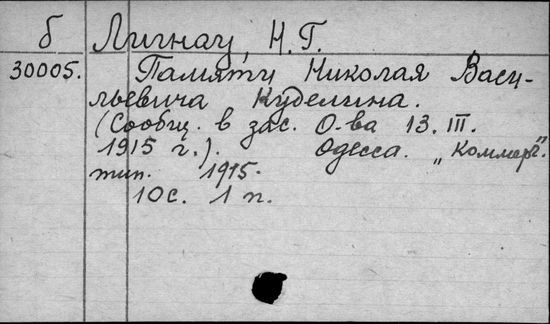 б Лигнау, Н. Г.
30005. Памяти Николая Васи-
льевича Куделина.
(Сообщ. в зас. О-ва 13. III.
1915 г.). Одесса. „Коммерч."
тип. 1915.
10 с. 1 п.